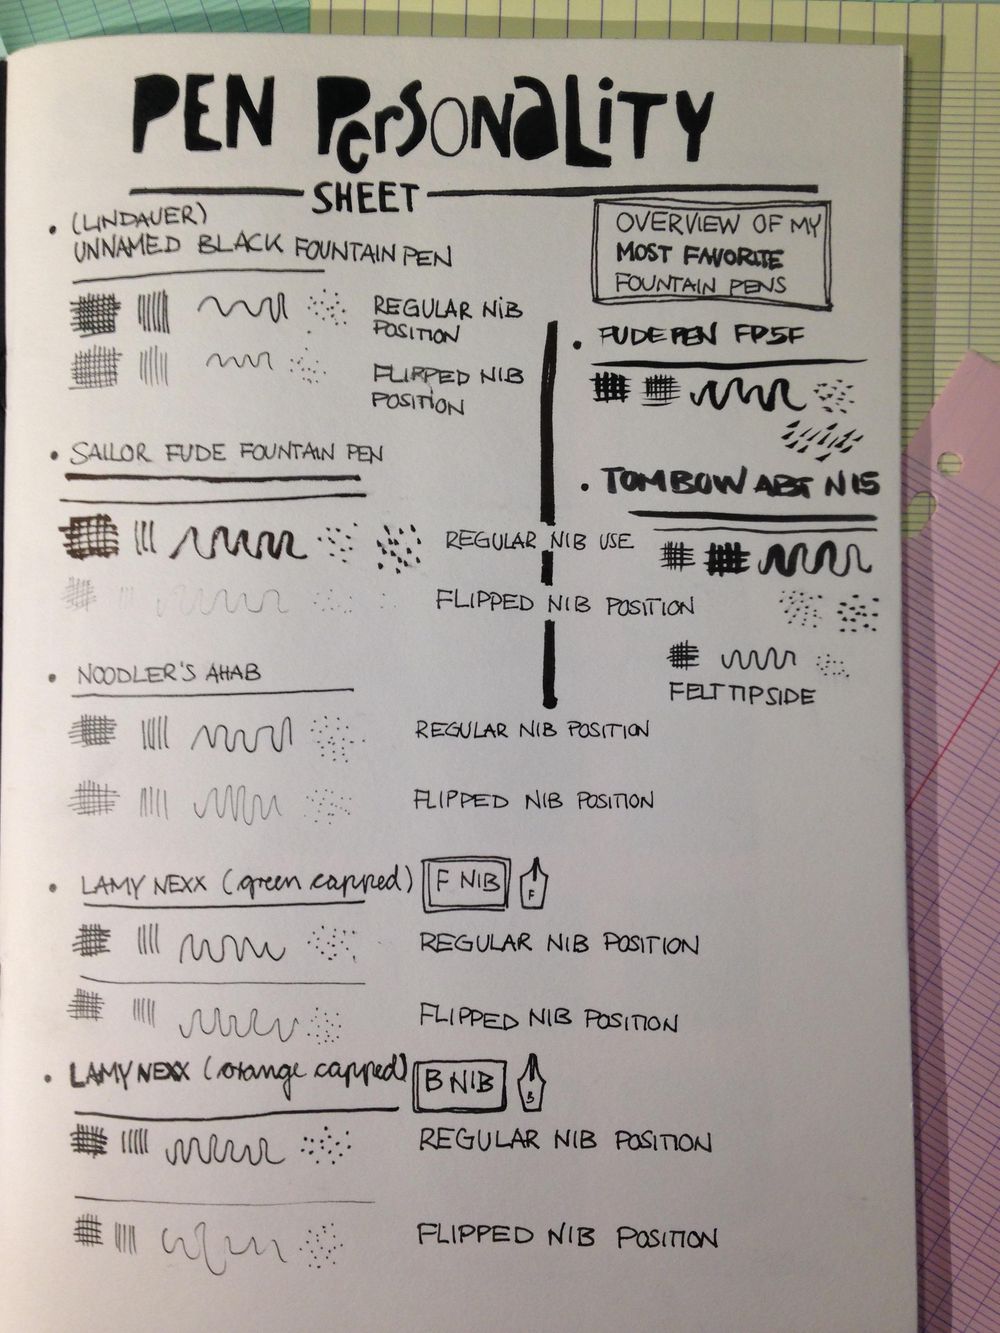 PEN PERSONALITY
SHEET
(LINDAUER)
UNNAMED BLACK FOUNTAIN PEN
REGULAR NIB
POSITION
FLIPPED NIB
POSITION
SAILOR FUDE FOUNTAIN PEN
REGULAR NIB USE
FLIPPED NIB POSITION
NOODLER'S AHAB
REGULAR NIB POSITION
FLIPPED NIB POSITION
LAMY NEXX (green capped) F NIB F
REGULAR NIB POSITION
FLIPPED NIB POSITION
LAMY NEXX (orange capped) B NIB B
REGULAR NIB POSITION
FLIPPED NIB POSITION
OVERVIEW OF MY
MOST FAVORITE
FOUNTAIN PENS
FUDEPEN FP5F
TOMBOW ABT N15
FELT TIP SIDE